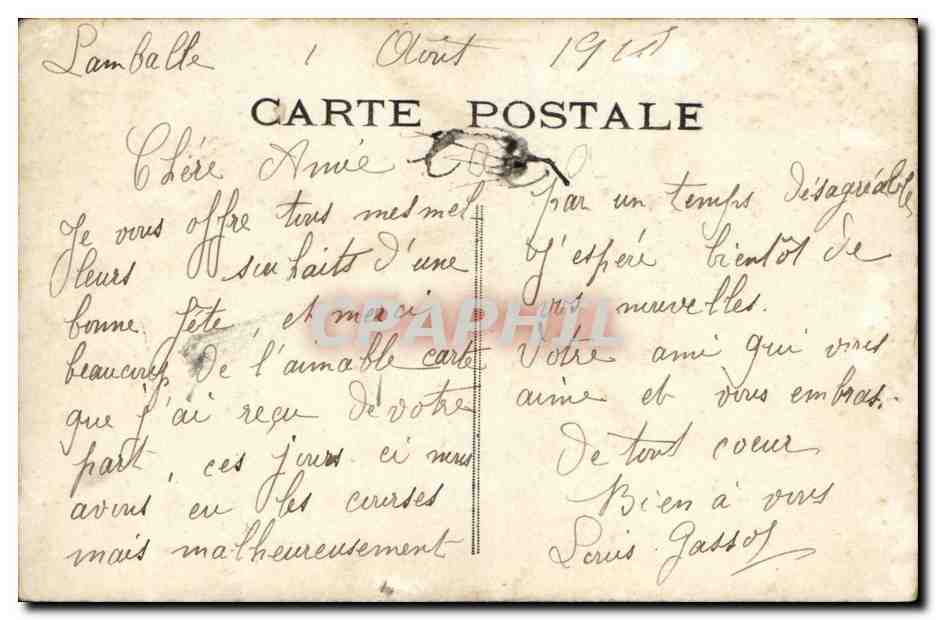 Lamballe 1 Août
CARTE POSTALE
Chére Amie
Je vous offre tous mes mel
leurs souhaits d'une
bonne fête, et merci
beaucoup de l'aimable carte
que j'ai reçu de votre
part, ces jours ci nous
avons eu les courses
mais malheureusement
par un temps désagréable
J'espére bientôt de
vos nouvelles.
Votre ami qui vous
aime et vous embras.
de tout coeur
Bien à vous
Louis
CPAPHIL